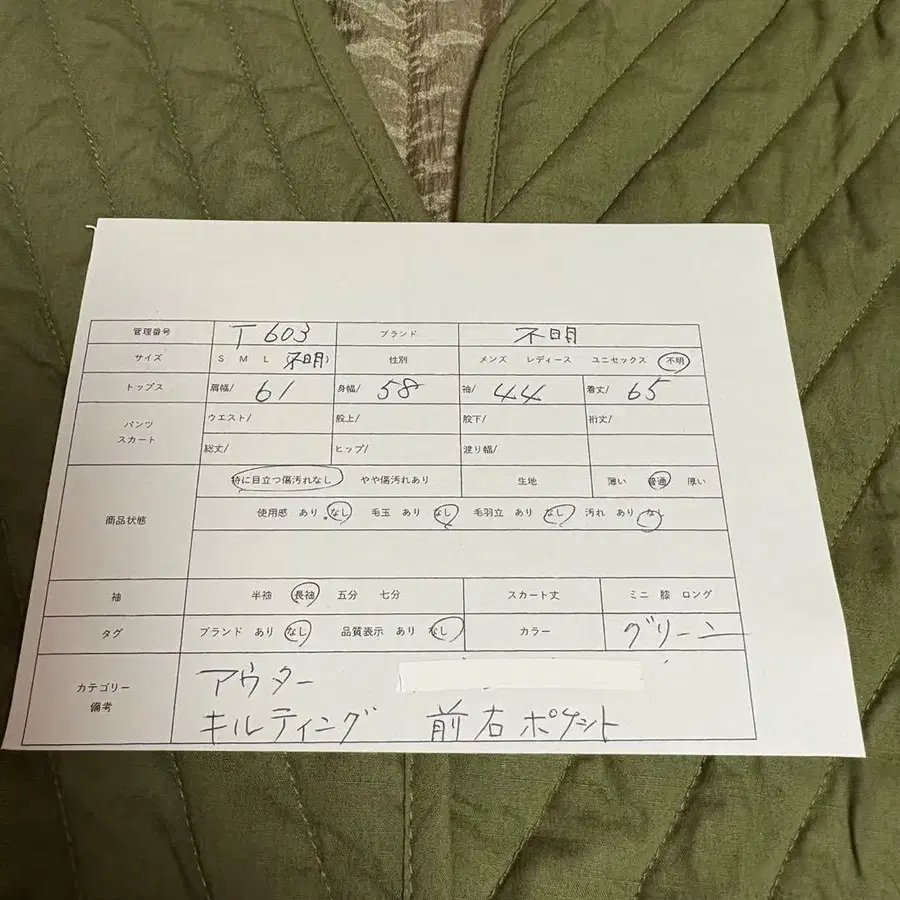 管理番号 T603 ブランド 不明
サイズ S M L 不明 性別 メンズ レディース ユニセックス 不明
トップス 肩幅/ 61 身幅/ 58 袖/ 44 着丈/ 65
パンツ スカート ウエスト/ 股上/ 股下/ 裄丈/
総丈/ ヒップ/ 渡り幅/
商品状態 特に目立つ傷汚れなし やや傷汚れあり 生地 薄い 普通 厚い
使用感 あり なし 毛玉 あり なし 毛羽立 あり なし 汚れ あり なし
袖 半袖 長袖 五分 七分 スカート丈 ミニ 膝 ロング
タグ ブランド あり なし 品質表示 あり なし カラー グリーン
カテゴリー 備考 アウター
キルティング 前右ポケット